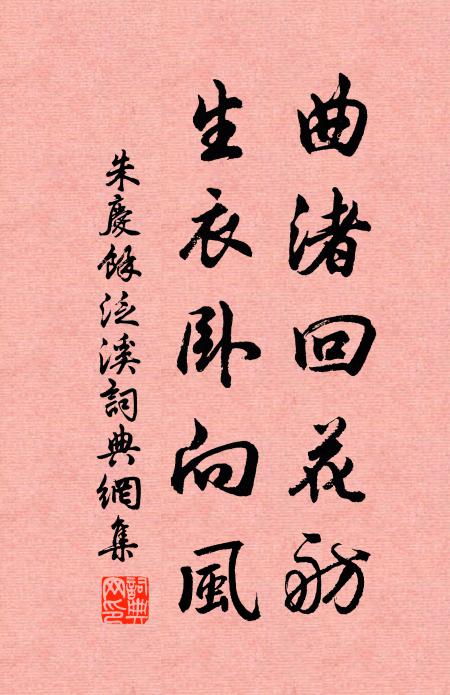 曲渚回花舫
生衣卧向風
朱慶餘泛溪詞典網集
詞典網印